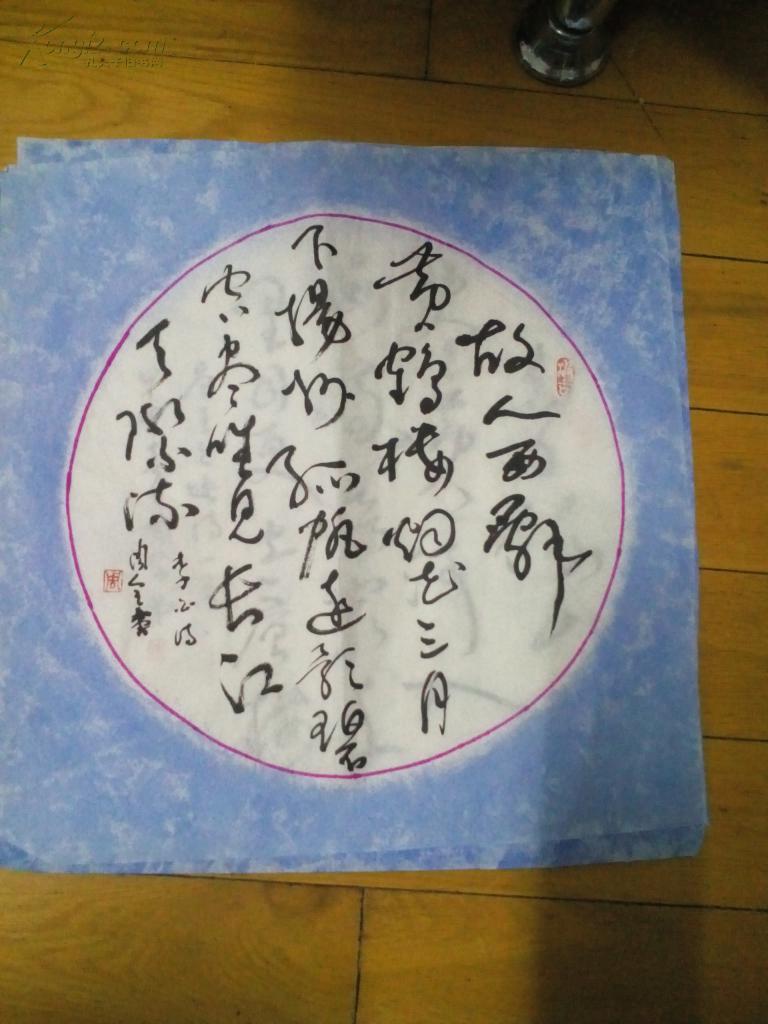 故人西辞
黄鹤楼烟花三月
下扬州孤帆远影碧
空尽唯见长江
天际流
李白诗